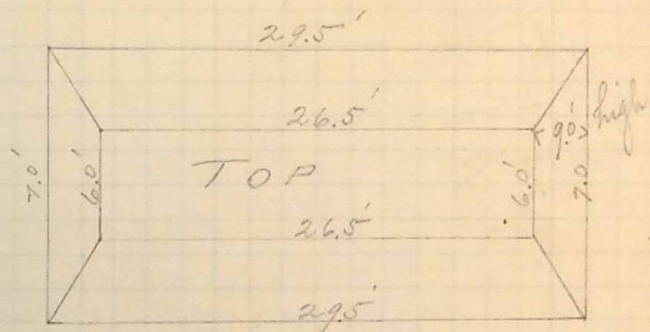 29.5'
26.5'
9.0' high
7.0'
6.0'
TOP
6.0'
7.0
26.5'
29.5'